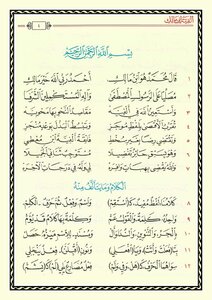 ألفية ابن مالك
بسم الله الرحمن الرحيم
١ قَالَ مُحَمَّدٌ هُوَ ابْنُ مَالِكِ أَحْمَدُ رَبِّي اللهَ خَيْرَ مَالِكِ
٢ مُصَلِّيًا عَلَى الرَّسُولِ الْمُصْطَفَى وَآلِهِ الْمُسْتَكْمِلِينَ الشَّرَفَا
٣ وَأَسْتَعِينُ اللهَ فِي أَلْفِيَّهْ مَقَاصِدُ النَّحْوِ بِهَا مَحْوِيَّهْ
٤ تُقَرِّبُ الْأَقْصَى بِلَفْظٍ مُوجَزِ وَتَبْسُطُ الْبَذْلَ بِوَعْدٍ مُنْجَزِ
٥ وَتَقْتَضِي رِضًا بِغَيْرِ سُخْطِ فَائِقَةً أَلْفِيَّةَ ابْنِ مُعْطِي
٦ وَهْوَ بِسَبْقٍ حَائِزٌ تَفْضِيلَا مُسْتَوْجِبٌ ثَنَائِيَ الْجَمِيلَا
٧ وَاللهُ يَقْضِي بِهِبَاتٍ وَافِرَهْ لِي وَلَهُ فِي دَرَجَاتِ الْآخِرَهْ
الْكَلَامُ وَمَا يَتَأَلَّفُ مِنْهُ
٨ كَلَامُنَا لَفْظٌ مُفِيدٌ كَاسْتَقِمْ وَاسْمٌ وَفِعْلٌ ثُمَّ حَرْفٌ الْكَلِمْ
٩ وَاحِدُهُ كَلِمَةٌ وَالْقَوْلُ عَمّْ وَكِلْمَةٌ بِهَا كَلَامٌ قَدْ يُؤَمّْ
١٠ بِالْجَرِّ وَالتَّنْوِينِ وَالنِّدَا وَأَلْ وَمُسْنَدٍ لِلِاسْمِ تَمْيِيزٌ حَصَلْ
١١ بِتَا فَعَلْتَ وَأَتَتْ وَيَا افْعَلِي وَنُونِ أَقْبِلَنَّ فِعْلٌ يَنْجَلِي
١٢ سِوَاهُمَا الْحَرْفُ كَهَلْ وَفِي وَلَمْ فِعْلٌ مُضَارِعٌ يَلِي لَمْ كَيَشَمّْ